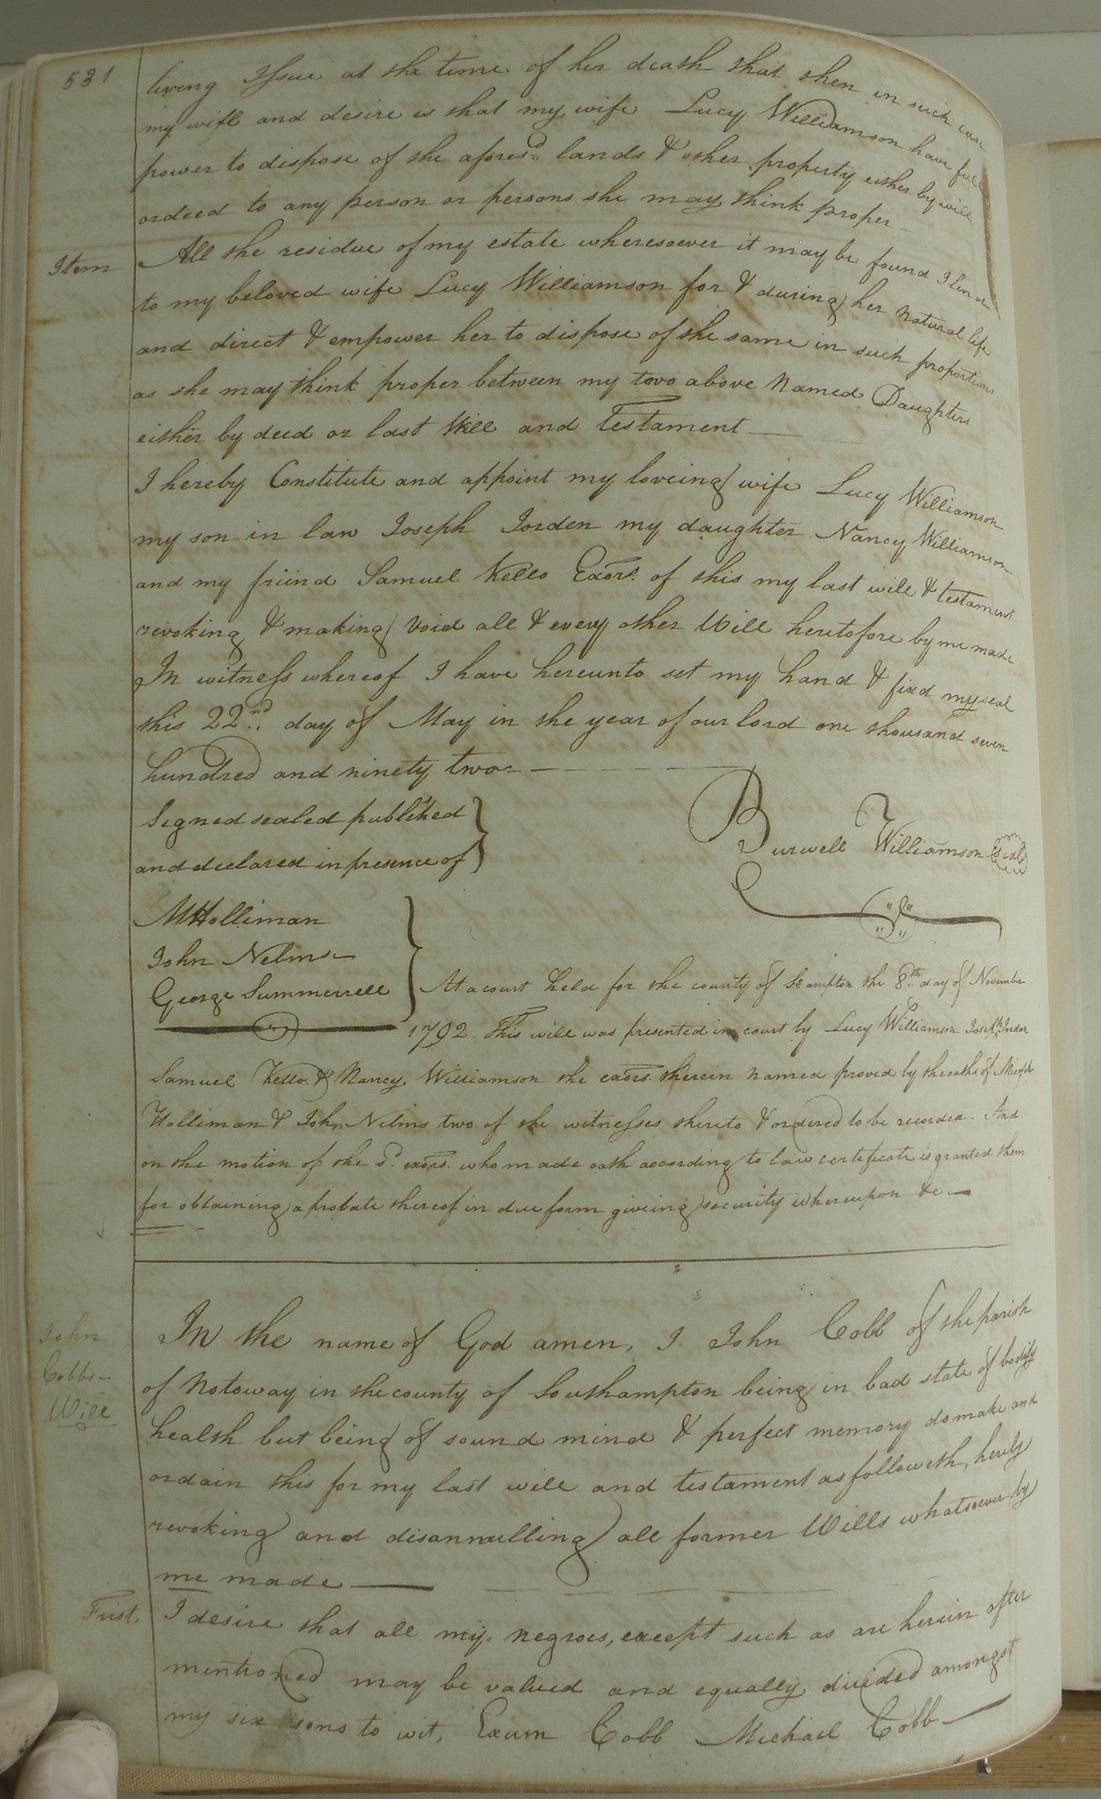 531
living Issue at the time of her death that then in such case
my will and desire is that my wife Lucy Williamson have full
power to dispose of the aforesd. lands & other property either by will
or deed to any person or persons she may think proper
Item All the residue of my estate wheresoever it may be found I lend
to my beloved wife Lucy Williamson for & during her natural life
and direct & empower her to dispose of the same in such proportions
as she may think proper between my two above Named Daughters
either by deed or last Will and Testament
I hereby Constitute and appoint my loveing wife Lucy Williamson
my son in law Joseph Jorden my daughter Nancy Williamson
and my friend Samuel Kello Exors. of this my last will & testament
revoking & making void all & every other Will heretofore by me made
In witness whereof I have hereunto set my hand & fixd my seal
this 22nd. day of May in the year of our lord one thousand seven
hundred and ninety two
Signed sealed published
and declared in presence of
Burwell Williamson Seal
M Holliman
John Nelms
George Summerrell
At a court held for the county of Shampton the 8th day of November
1792. This will was presented in court by Lucy Williamson Joseph Jorden
Samuel Kello & Nancy Williamson the exors. therein named proved by the oaths of
Holliman & John Nelms two of the witnesses thereto & ordered to be recorded And
on the motion of the sd. exors. who made oath according to law certificate is granted them
for obtaining a probate thereof in due form giveing security whereupon &c
John
Cobbs
Will
In the name of God amen, I John Cobb of the parish
of Notoway in the county of Southampton being in bad state of bodily
health but being of sound mind & perfect memory do make and
ordain this for my last will and testament as followeth, hereby
revoking and disannulling all former Wills whatsoever by
me made
First, I desire that all my negroes, except such as are herein after
mentioned may be valued and equally divided amongst
my six sons to wit, Exum Cobb Michael Cobb